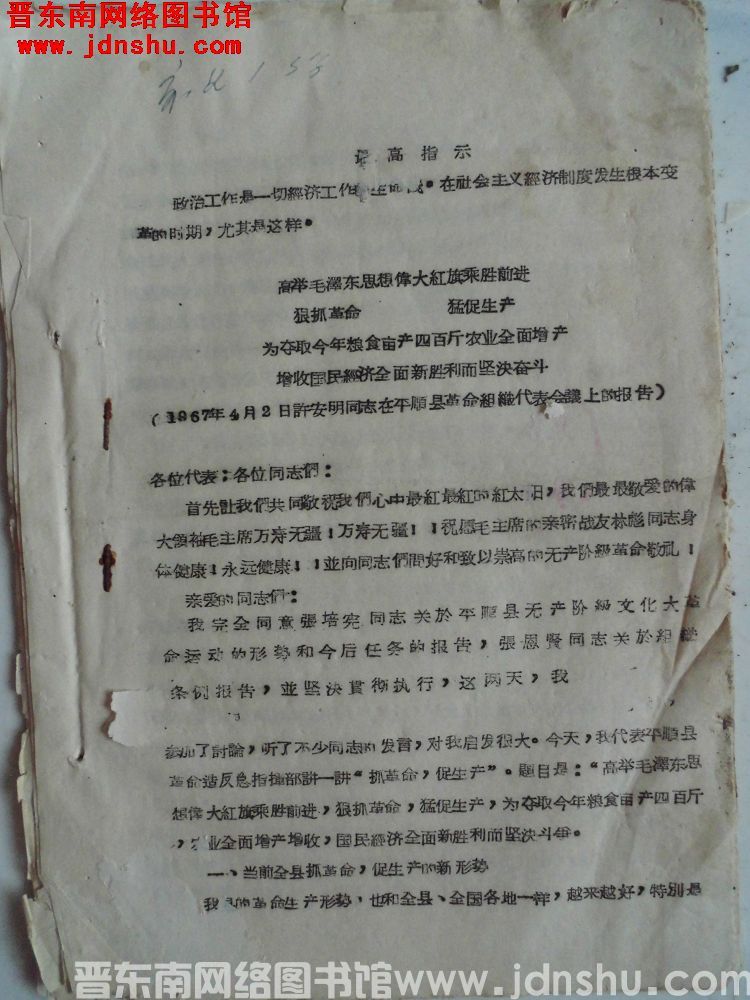 晋东南网络图书馆
www.jdnshu.com
最高指示
政治工作是一切經济工作的生命线。在社会主义經济制度发生根本变
革的时期，尤其是这样。
高举毛澤东思想偉大紅旗乘胜前进
狠抓革命 猛促生产
为夺取今年粮食亩产四百斤农业全面增产
增收国民經济全面新胜利而坚決奋斗
（1967年4月2日許安明同志在平順县革命組織代表会議上的报告）
各位代表；各位同志們：
首先讓我們共同敬祝我們心中最紅最紅的紅太阳，我們最最敬爱的偉
大領袖毛主席万寿无疆！万寿无疆！！祝愿毛主席的亲密战友林彪同志身
体健康！永远健康！！並向同志們問好和致以崇高的无产阶級革命敬礼！
亲爱的同志們：
我完全同意張培宪同志关於平順县无产阶級文化大革
命运动的形势和今后任务的报告，張恩賢同志关於組織
条例报告，並坚決貫彻执行，这两天，我
参加了討論，听了不少同志的发言，对我启发很大。今天，我代表平順县
革命造反总指揮部講一講“抓革命，促生产”。題目是：“高举毛澤东思
想偉大紅旗乘胜前进，狠抓革命，猛促生产，为夺取今年粮食亩产四百斤
，农业全面增产增收，国民經济全面新胜利而坚決斗争。
一、当前全县抓革命，促生产的新形势
我 的革命生产形势，也和全县、全国各地一样，越来越好，特別是
晋东南网络图书馆www.jdnshu.com